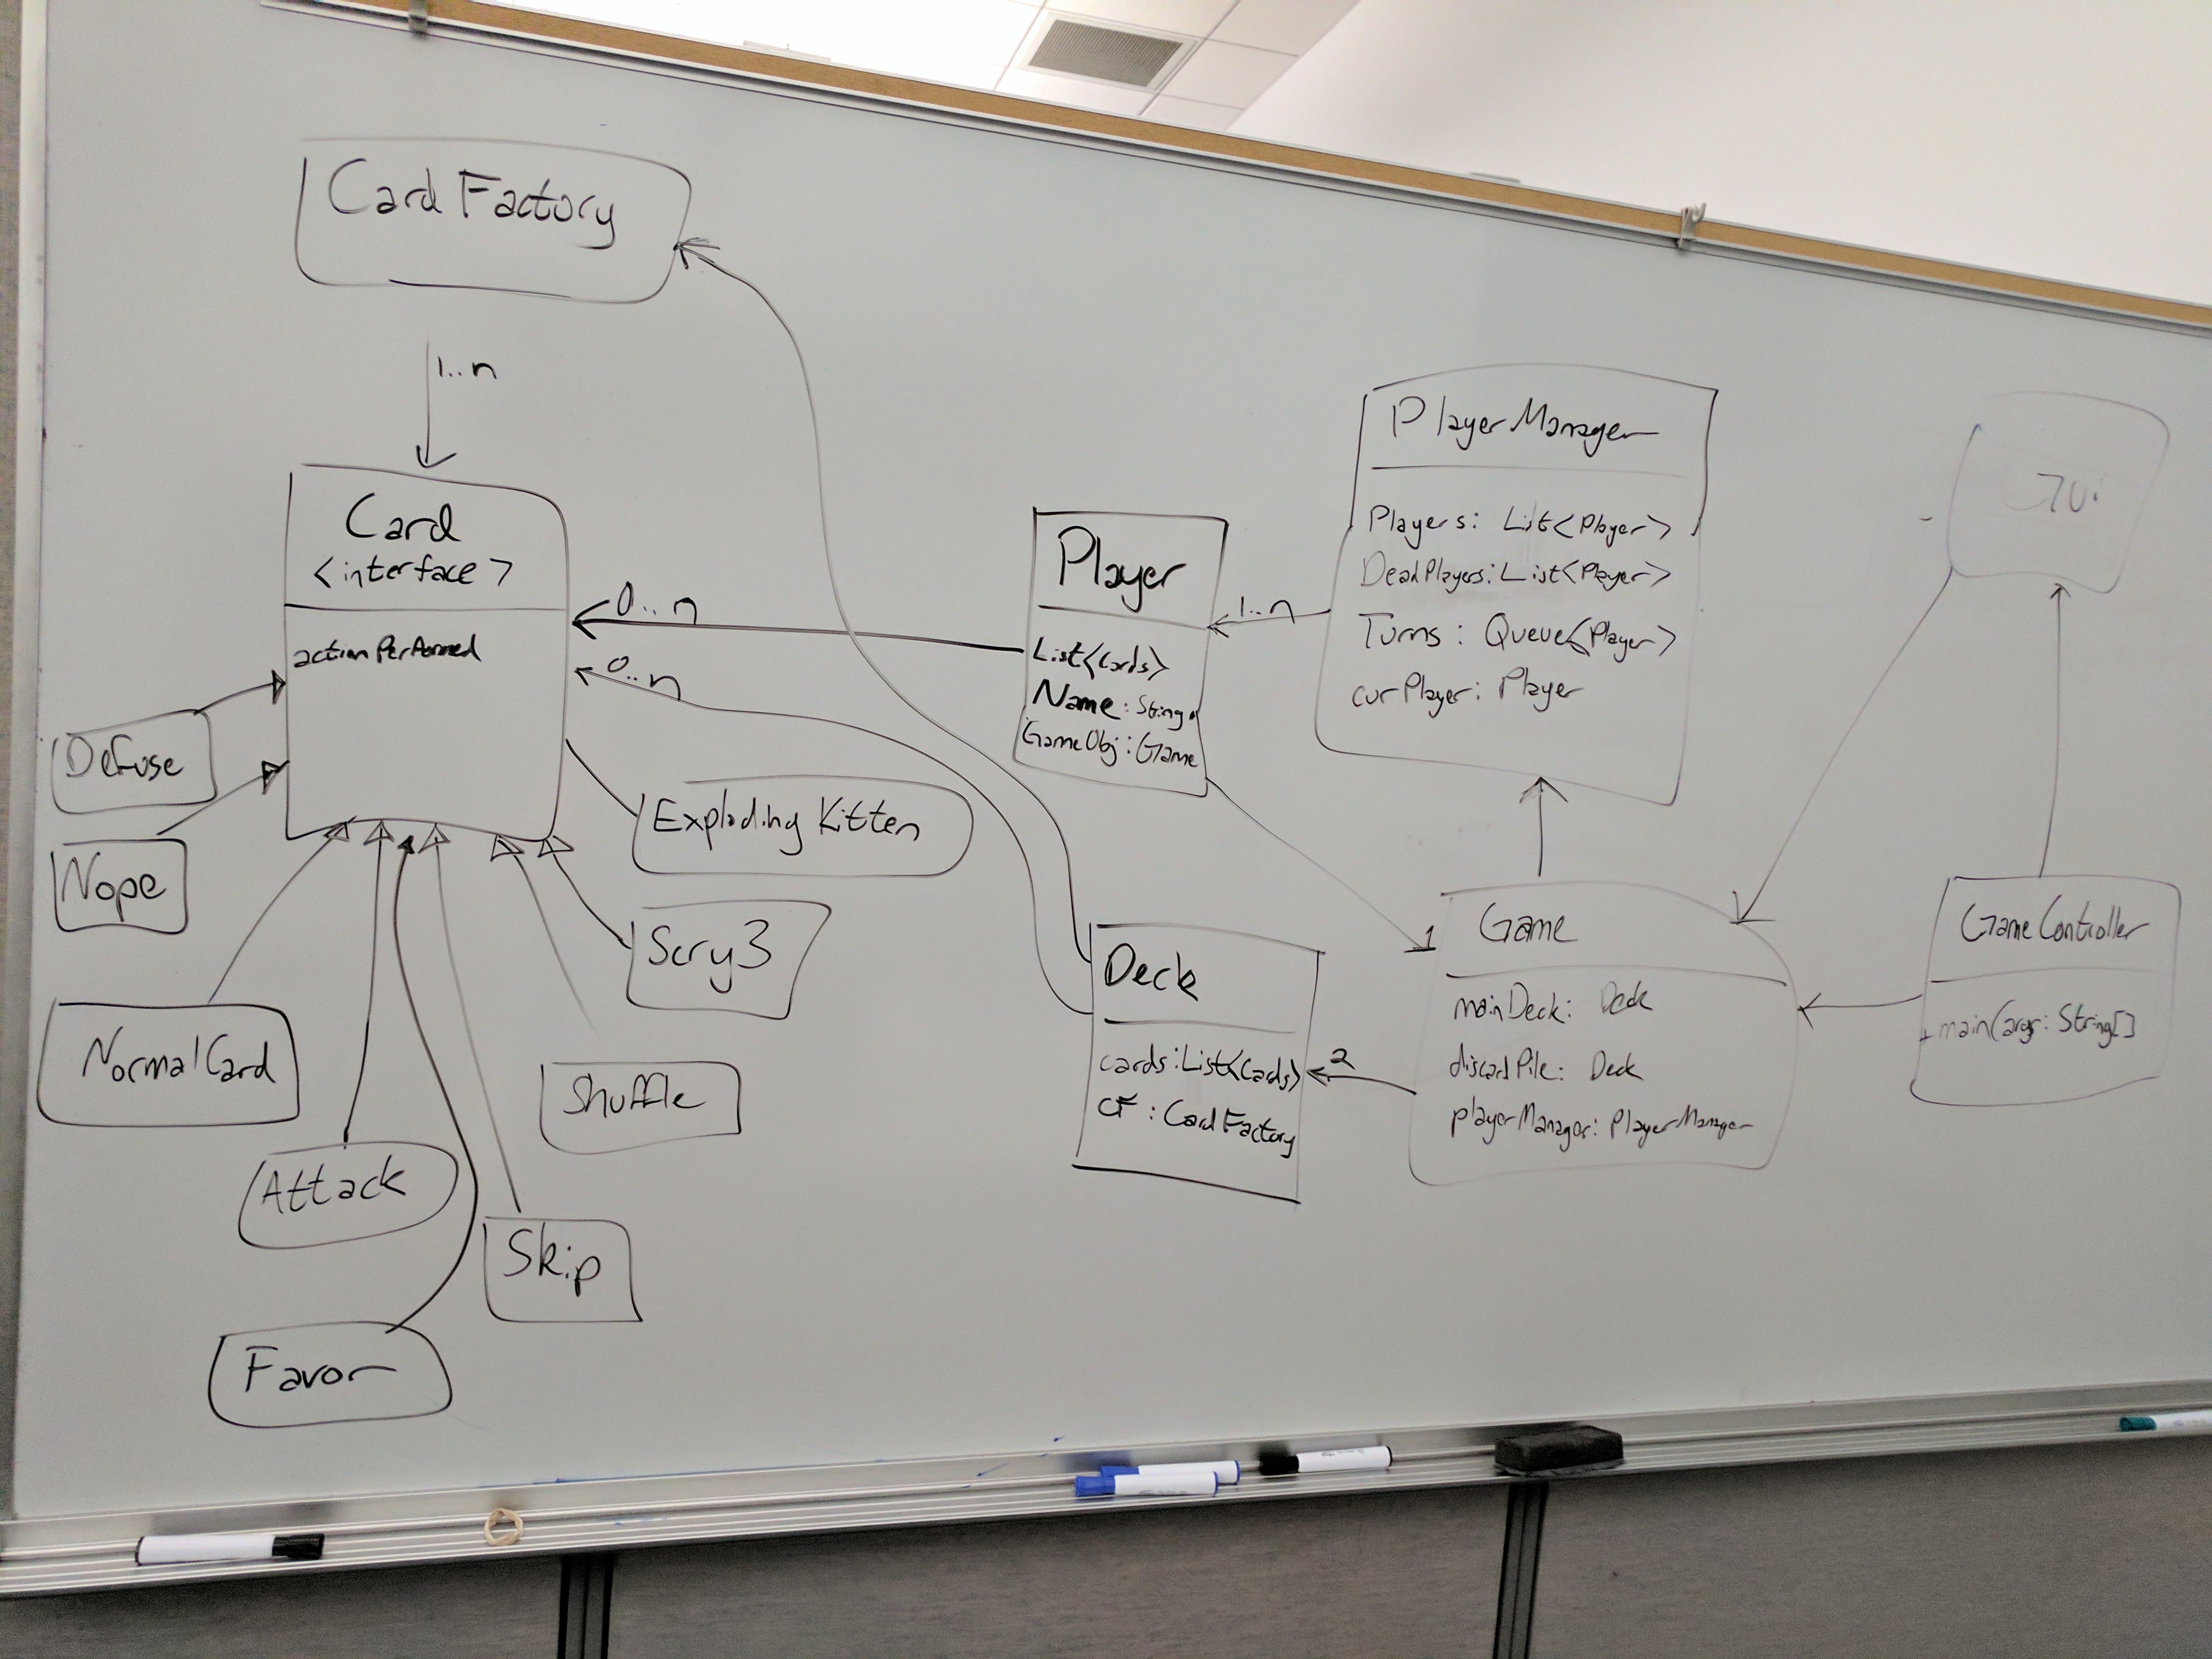 Card Factory
1..n
Card
<interface>
actionPerformed
0..n
0..n
Defuse
Nope
NormalCard
Attack
Favor
Skip
Shuffle
Scry3
Exploding Kitten
Player
List<Cards>
Name: String
GameObj: Game
1..n
PlayerManager
Players: List<Player>
DeadPlayers: List<Player>
Turns: Queue<Player>
curPlayer: Player
Deck
cards: List<Cards>
CF: CardFactory
2
1
Game
mainDeck: Deck
discardPile: Deck
playerManager: PlayerManager
Gui
GameController
+main(args: String[])